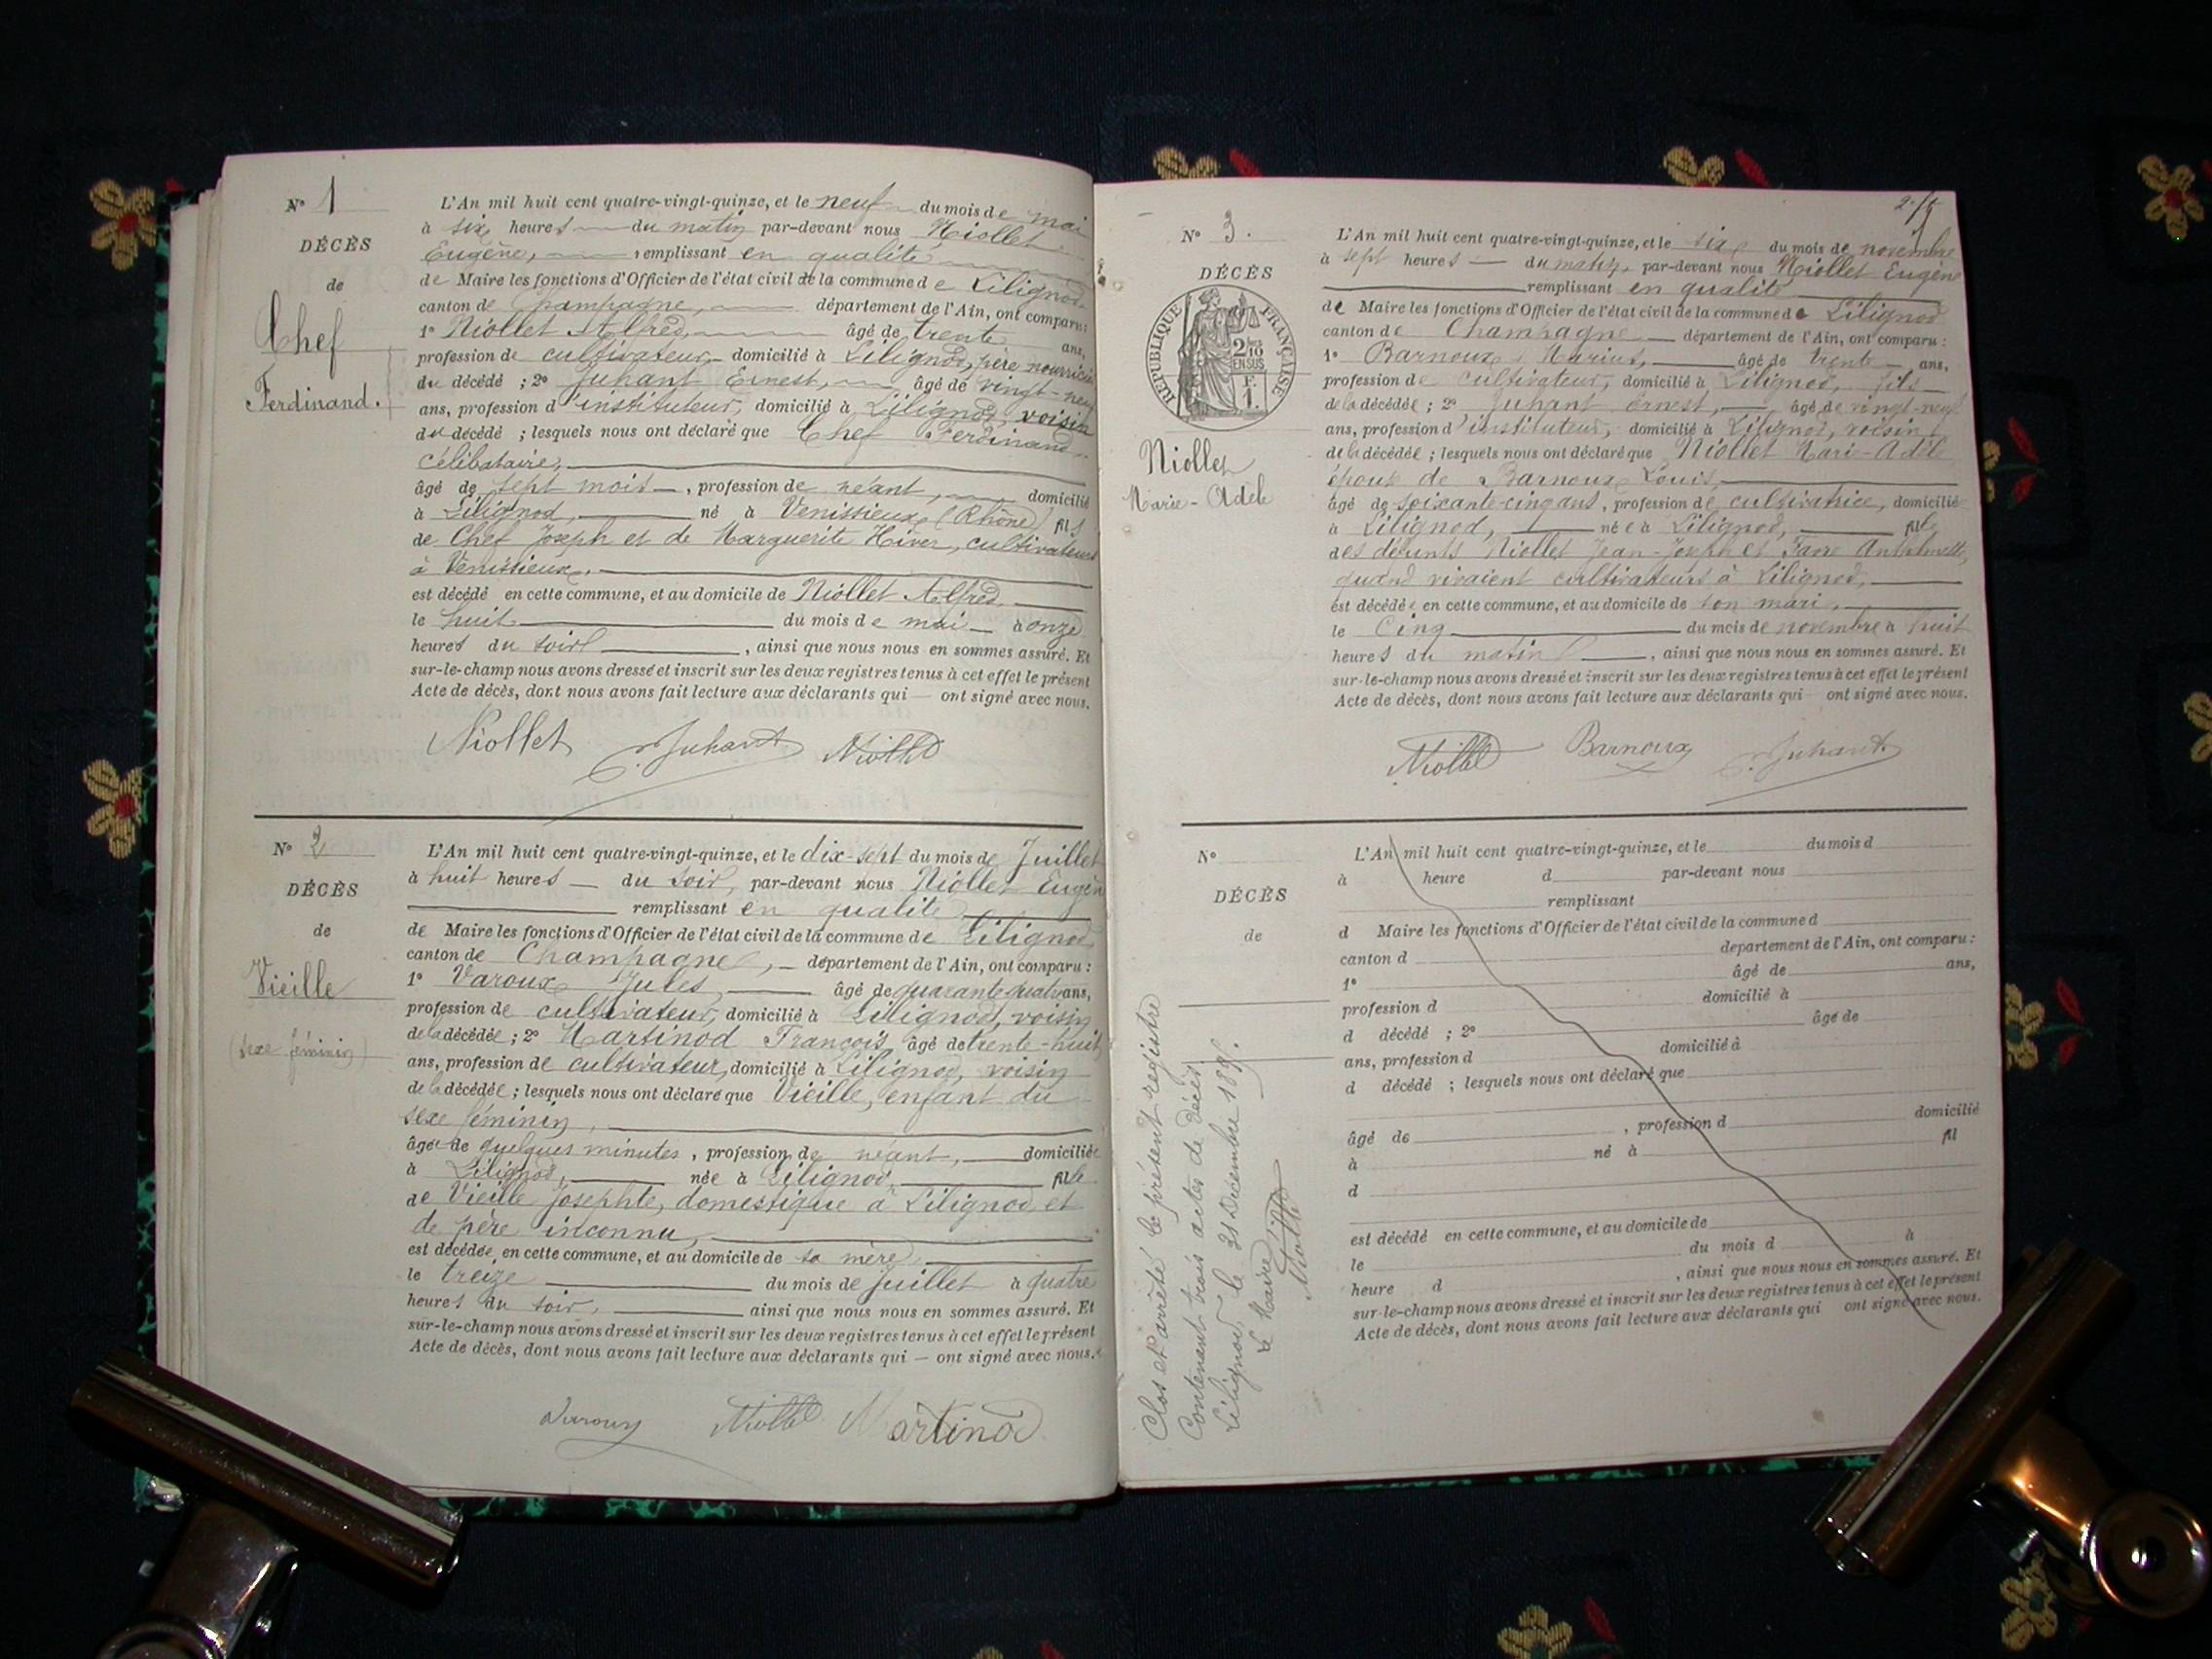 N° 1
DÉCÈS
de
Chef
Ferdinand.
L'An mil huit cent quatre-vingt-quinze, et le neuf du mois de mai
à six heures du matin par-devant nous Niollet
Eugène, remplissant en qualité
de Maire les fonctions d'Officier de l'état civil de la commune de Lilignod
canton de Champagne, département de l'Ain, ont comparu:
1° Niollet Alfred, âgé de trente ans,
profession de cultivateur, domicilié à Lilignod, père nourricier
du décédé ; 2° Juhant Ernest, âgé de vingt-neuf
ans, profession d'instituteur, domicilié à Lilignod, voisin
du décédé ; lesquels nous ont déclaré que Chef Ferdinand
célibataire,
âgé de sept mois, profession de néant, domicilié
à Lilignod, né à Venissieux (Rhône) fils
de Chef Joseph et de Marguerite Hiver, cultivateurs
à Venissieux,
est décédé en cette commune, et au domicile de Niollet Alfred,
le huit du mois de mai à onze
heures du soir, ainsi que nous nous en sommes assuré. Et
sur-le-champ nous avons dressé et inscrit sur les deux registres tenus à cet effet le présent
Acte de décès, dont nous avons fait lecture aux déclarants qui — ont signé avec nous.
Niollet E. Juhant Niollet
N° 2
DÉCÈS
de
Vieille
(sexe féminin)
L'An mil huit cent quatre-vingt-quinze, et le dix-sept du mois de Juillet
à huit heures du soir, par-devant nous Niollet Eugène
remplissant en qualité
de Maire les fonctions d'Officier de l'état civil de la commune de Lilignod
canton de Champagne, département de l'Ain, ont comparu :
1° Varoux Jules, âgé de quarante quatre ans,
profession de cultivateur, domicilié à Lilignod, voisin
de la décédée ; 2° Martinod François âgé de trente-huit
ans, profession de cultivateur, domicilié à Lilignod, voisin
de la décédée ; lesquels nous ont déclaré que Vieille, enfant du
sexe féminin,
âgée de quelques minutes, profession de néant, domiciliée
à Lilignod, née à Lilignod, fille
de Vieille Josephte, domestique à Lilignod et
de père inconnu,
est décédée en cette commune, et au domicile de sa mère,
le treize du mois de juillet à quatre
heures du soir, ainsi que nous nous en sommes assuré. Et
sur-le-champ nous avons dressé et inscrit sur les deux registres tenus à cet effet le présent
Acte de décès, dont nous avons fait lecture aux déclarants qui — ont signé avec nous.
Varoux Niollet Martinod
N° 3.
DÉCÈS
RÉPUBLIQUE FRANÇAISE
2/10
EN SUS
F.
1.
Niollet
Marie-Adèle
L'An mil huit cent quatre-vingt-quinze, et le six du mois de novembre
à sept heures du matin, par-devant nous Niollet Eugène
remplissant en qualité
de Maire les fonctions d'Officier de l'état civil de la commune de Lilignod
canton de Champagne département de l'Ain, ont comparu :
1° Barnoux Marius, âgé de trente ans,
profession de cultivateur, domicilié à Lilignod, fils
de la décédée ; 2° Juhant Ernest, âgé de vingt-neuf
ans, profession d'instituteur, domicilié à Lilignod, voisin
de la décédée ; lesquels nous ont déclaré que Niollet Marie-Adèle
épouse de Barnoux Louis,
âgé de soixante-cinq ans, profession de cultivatrice, domicilié
à Lilignod, née à Lilignod, fille
des défunts Niollet Jean-Joseph et Favre
quand vivaient cultivateurs à Lilignod,
est décédée en cette commune, et au domicile de son mari,
le Cinq du mois de novembre à huit
heures du matin, ainsi que nous nous en sommes assuré. Et
sur-le-champ nous avons dressé et inscrit sur les deux registres tenus à cet effet le présent
Acte de décès, dont nous avons fait lecture aux déclarants qui — ont signé avec nous.
Niollet Barnoux E. Juhant
N°
DÉCÈS
de
L'An mil huit cent quatre-vingt-quinze, et le du mois d
à heure d par-devant nous
remplissant
d Maire les fonctions d'Officier de l'état civil de la commune d
canton d département de l'Ain, ont comparu :
1° âgé de ans,
profession d domicilié à
d décédé ; 2° âgé de
ans, profession d domicilié à
d décédé ; lesquels nous ont déclaré que
âgé de , profession d domicilié
à né à fil
d
est décédé en cette commune, et au domicile de
le du mois d à
heure d , ainsi que nous nous en sommes assuré. Et
sur-le-champ nous avons dressé et inscrit sur les deux registres tenus à cet effet le présent
Acte de décès, dont nous avons fait lecture aux déclarants qui ont signé avec nous.
Clos et arrêté le présent registre
Contenant trois actes de décès.
Lilignod, le 31 Décembre 1895.
Le Maire,
Niollet